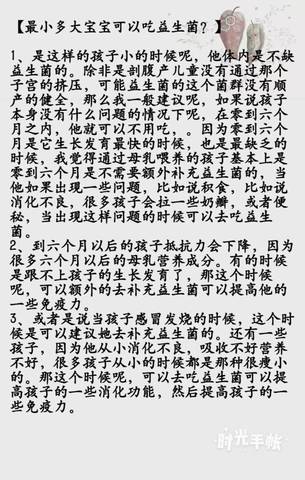 【最小多大宝宝可以吃益生菌？】
1、是这样的孩子小的时候呢，他体内是不缺
益生菌的。除非是剖腹产儿童没有通过那个
子宫的挤压，可能益生菌的这个菌群没有顺
产的健全，那么我一般建议呢，如果说孩子
本身没有什么问题的情况下呢，在零到六个
月之内，他就可以不用吃，。因为零到六个
月是它生长发育最快的时候，也是最缺乏的
时候，我觉得通过母乳喂养的孩子基本上是
零到六个月是不需要额外补充益生菌的，当
他如果出现一些问题，比如说积食，比如说
消化不良，很多孩子会拉一些奶瓣，或者便
秘，当出现这样问题的时候可以去吃益生
菌。
2、到六个月以后的孩子抵抗力会下降，因为
很多六个月以后的母乳营养成分。有的时候
是跟不上孩子的生长发育了，那这个时候
呢，可以额外的去补充益生菌可以提高他的
一些免疫力。
3、或者是说当孩子感冒发烧的时候，这个时
候是可以建议她去补充益生菌的。还有一些
孩子，因为他从小消化不良，吸收不好营养
不好，很多孩子从小的时候都是那种很瘦小
的。那这个时候呢，可以去吃益生菌可以提
高孩子的一些消化功能，然后提高孩子的一
些免疫力。
时光手帐